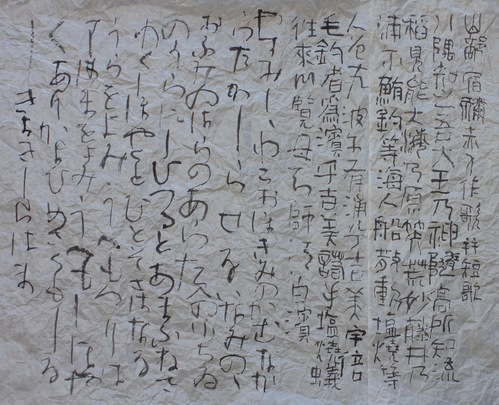 山部宿祢赤人作歌并短歌
八隅知之吾大王乃神随高所知流
稲見能大海乃原笶荒妙藤井乃
浦尓鮪釣等海人船散動塩焼等
人 左波尓有浦乎吉美宇倍
毛釣者為濱乎吉美 塩焼蟻
往来 覧母知師清白濱
やすみしゝわこおほきみのかむなか
らたかしらせるいなみのゝ
おふみのはらのあらたへのふちゐ
のうらにしひつるとあまふねさ
わくしほやくとひとそさはなる
うらをよみうへもつりは
すはまをよみうへもしほや
くありかよひめさくもしる
きよきしらはま